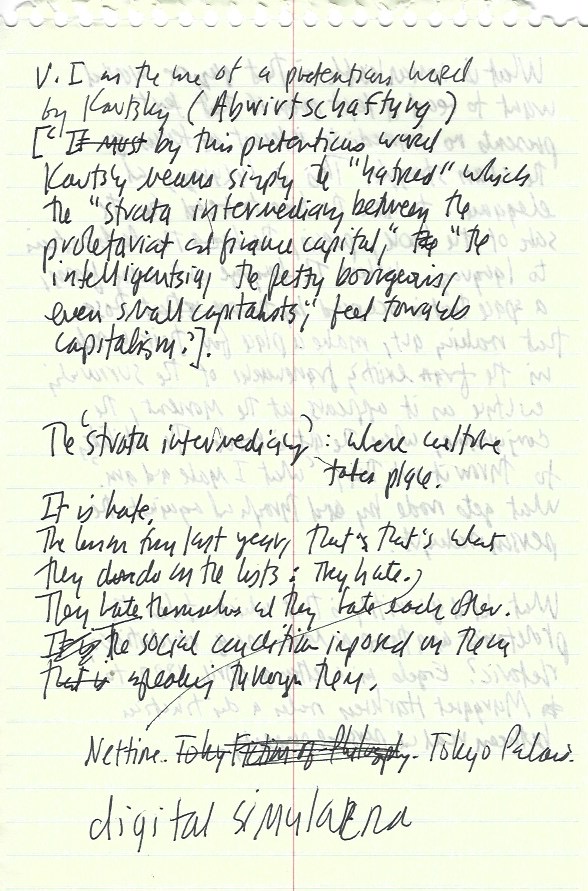 V. I on the use of a pretentious word
by Kautsky (Abwirtschaftung)
[" It must by this pretentious word
Kautsky means simply the "hatred" which
the "strata intermediary between the
proletariat and finance capital," the "the
intelligentsia, the petty bourgeois,
even small capitalists," feel towards
capitalism?].
The "strata intermediary": where culture
takes place.
It is hate.
The lesson from last year, that's that's what
they do on the lists: They hate.
They hate themselves and they hate each other.
It is the social condition imposed on them
that is speaking through them.
Nettime. Tokyo Fiction of Philosophy. Tokyo Palais.
digital simulacra